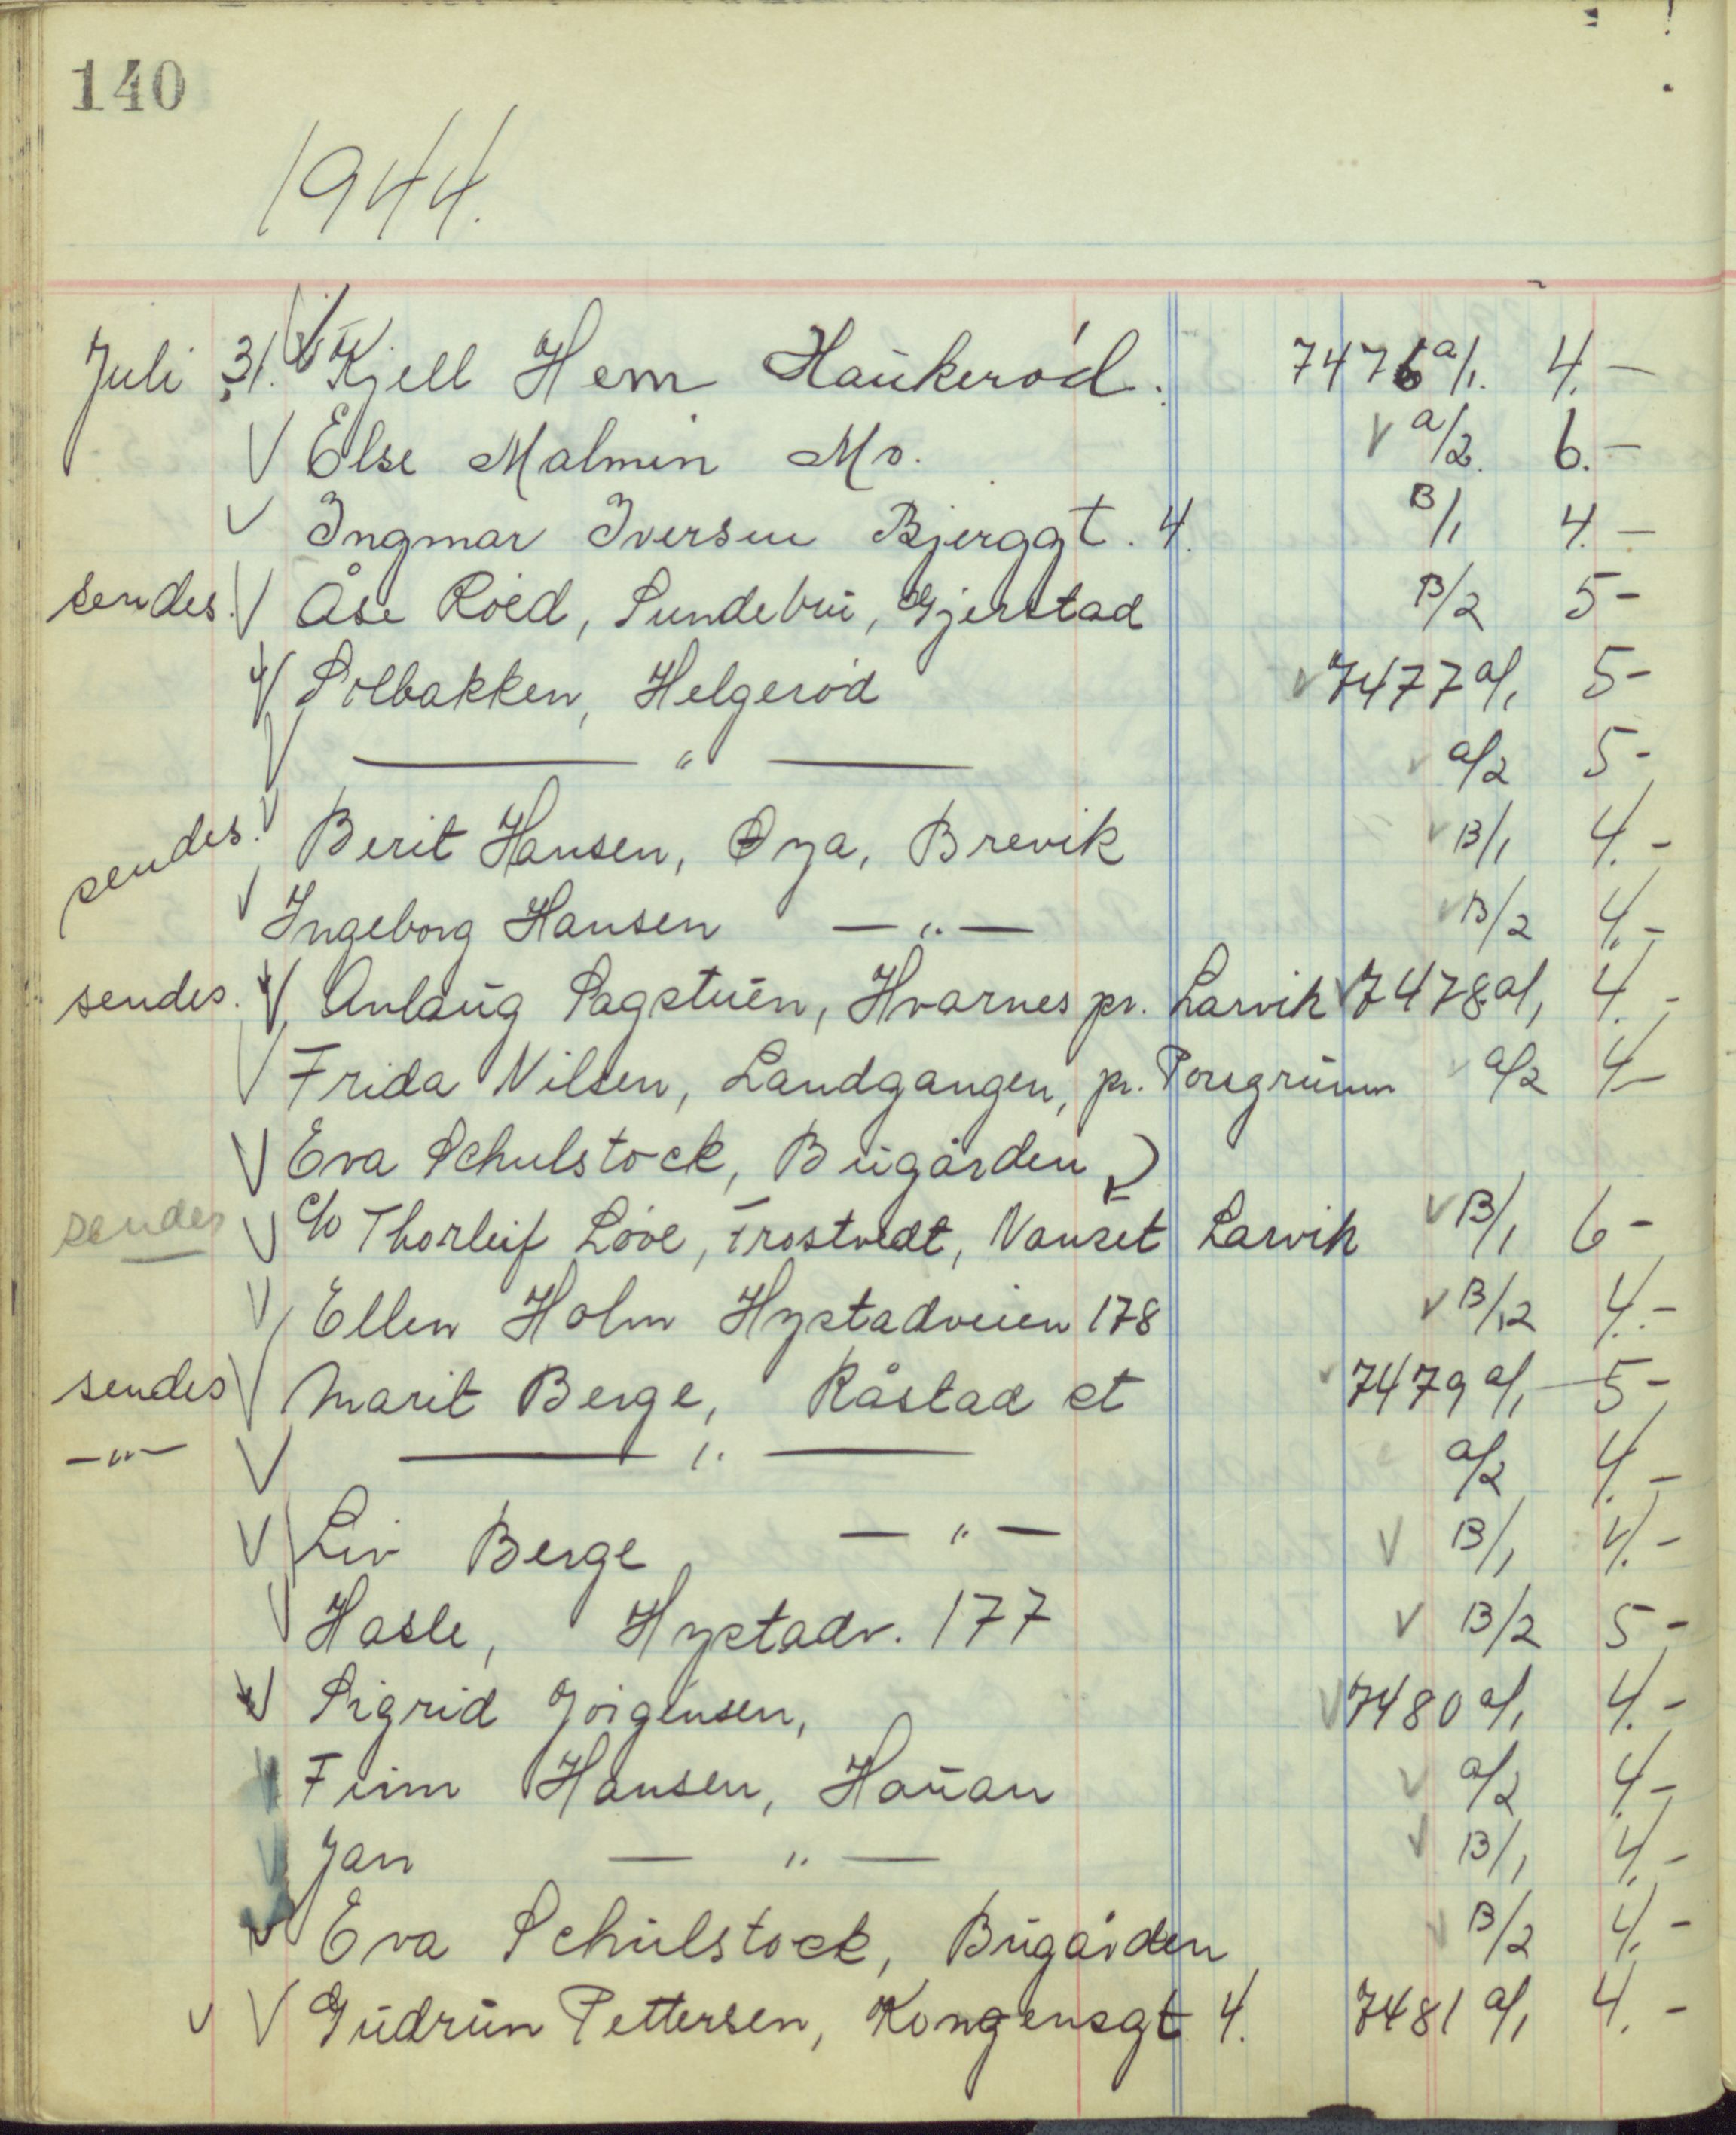 140
1944.
Juli 31. Kjell Hem Haukerød. 7476 a/1. 4.-
V Else Malmin Mo. V a/2. 6.-
V Ingmar Iversen Bjerggt. 4. B/1 4.-
sendes. V Åse Röed, Sundebru, Gjerstad B/2 5-
V Solbakken, Helgeröd V 7477 a/1 5-
V — " — V a/2 5-
sendes. V Berit Hansen, Øya, Brevik V B/1 4.-
V Ingeborg Hansen — " — V B/2 4.-
sendes. V Anlaug Sagstuen, Hvarnes pr. Larvik V 7478 a/1 4.-
V Frida Nilsen, Landgangen, pr. Porsgrunn V a/2 4-
V Eva Schulstock, Bugården
sendes V c/o Thorleif Löve, Trostvedt, Nanset Larvik V B/1 6-
V Ellen Holm Hystadveien 178 V B/2 4.-
sendes V Marit Berge, Råstad st V 7479 a/1 5-
— " — V — " — a/2 4.-
V Liv Berge — " — V B/1 4.-
V Hasle, Hystadv. 177 V B/2 5-
V Sigrid Jörgensen, V 7480 a/1 4.-
V Finn Hansen, Hauan V a/2 4.-
V Jan — " — V B/1 4.-
V Eva Schulstock, Bugården V B/2 4.-
V V Gudrun Pettersen, Kongensgt. 4. 7481 a/1 4.-